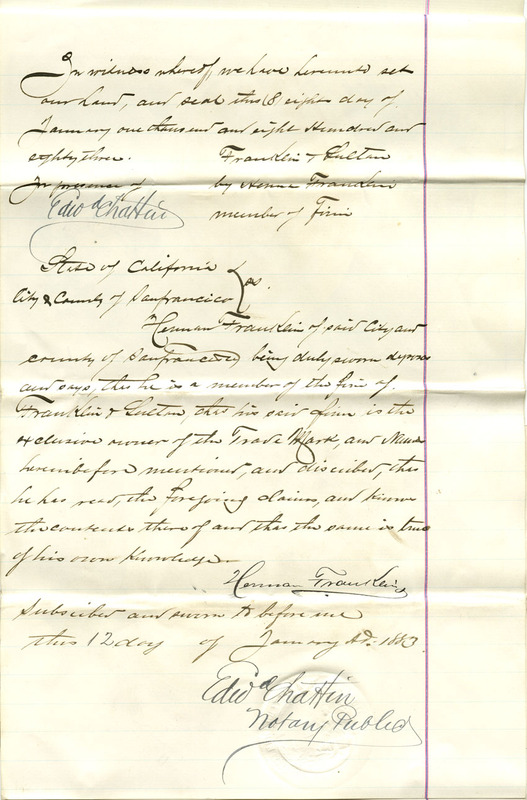 In witness whereof, we have hereunto set
our hand, and seal this (8 eight day of
January one thousand and eight Hundred and
eighty three. Franklin &
In presence of by Franklin
Edwd Chattin member of Firm
State of California } ss.
City & County of Sanfrancisco
Herman Franklin of said City and
county of Sanfrancisco being duly sworn deposes
and says, that he is a member of the firm of
Franklin & that his said firm is the
exclusive owner of the Trade Mark, and Name
hereinbefore mentioned, and discribed, that
he has read, the foregoing claims, and knows
the contents there of and that the same is true
of his own Knowledge
Herman Franklin
Subscribed and sworn to before me
this 12 day of January AD. 1883
Edwd Chattin
Notary Public